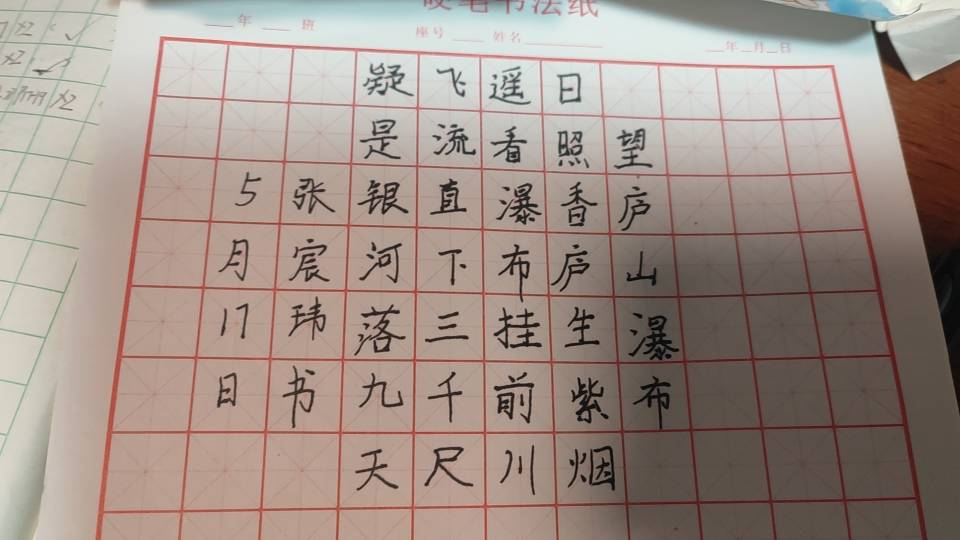 硬笔书法纸
年 班 座号 姓名 年 月 日
望庐山瀑布
日照香庐生紫烟
遥看瀑布挂前川
飞流直下三千尺
疑是银河落九天
张宸玮书
5月17日